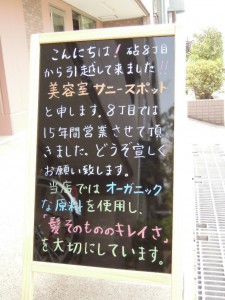 こんにちは!砧8丁目
から引越して来ました!!
美容室サニースポット
と申します。8丁目では
15年間営業させて頂
きました。どうぞ宜しく
お願い致します。
当店ではオーガニック
な原料を使用し、
「髪そのもののキレイさ」
を大切にしています。